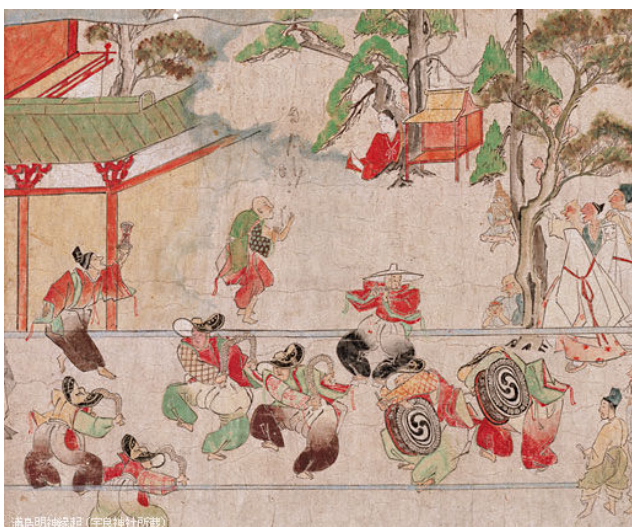 浦島明神縁起 (宇良神社所蔵)